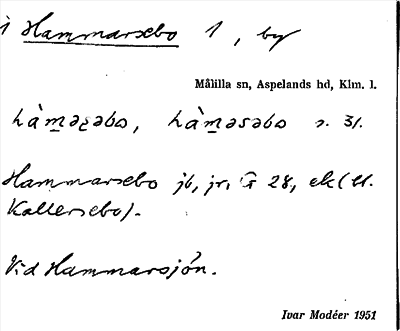 i Hammarsebo 1, by
Målilla sn, Aspelands hd, Klm. l.
hàm̲əʂəbo, hàm̲əsəbo s. 31.
Hammarsebo jb, jr, G 28, ek (bl.
Kallersebo).
Vid Hammarsjön.
Ivar Modéer 1951